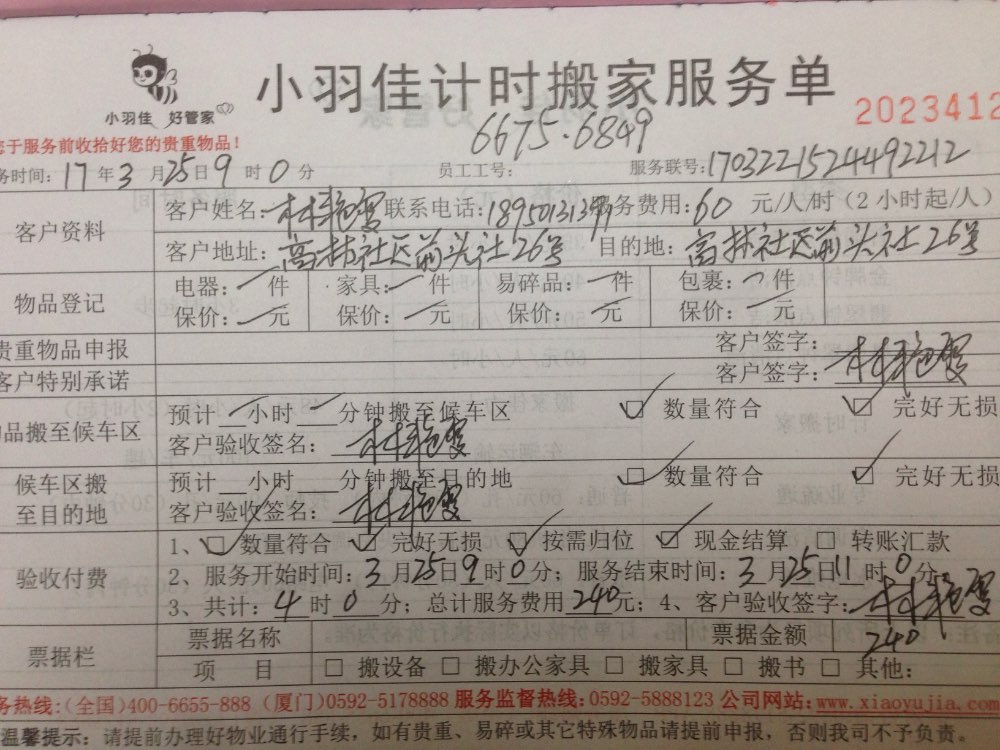 小羽佳 好管家
小羽佳计时搬家服务单
2023412
您于服务前收拾好您的贵重物品!
6675·6849
务时间: 17 年 3 月 25 日 9 时 0 分 员工工号: 服务联号: 1703221524492212
客户资料
客户姓名: 林艳雯 联系电话: 18950131399 务费用: 60 元/人/时（2小时起/人）
客户地址: 高林社区前头社26号 目的地: 高林社区前头社26号
物品登记
电器: 一 件 家具: 一 件 易碎品: 一 件 包裹: 一 件
保价: 一 元 保价: 一 元 保价: 一 元 保价: 一 元
贵重物品申报 客户签字:
客户特别承诺 客户签字: 林艳雯
物品搬至候车区
预计 一 小时 一 分钟搬至候车区 ☑ 数量符合 ☑ 完好无损
客户验收签名: 林艳雯
候车区搬至目的地
预计 小时 分钟搬至目的地 ☑ 数量符合 ☑ 完好无损
客户验收签名: 林艳雯
验收付费
1、☑ 数量符合 ☑ 完好无损 ☑ 按需归位 ☑ 现金结算 □ 转账汇款
2、服务开始时间: 3 月 25 日 9 时 0 分; 服务结束时间: 3 月 25 日 11 时 0 分
3、共计: 4 时 0 分; 总计服务费用 240 元; 4、客户验收签字: 林艳雯
票据栏
票据名称 票据金额 240
项 目 □ 搬设备 □ 搬办公家具 □ 搬家具 □ 搬书 □ 其他:
务热线:(全国)400-6655-888 (厦门)0592-5178888 服务监督热线: 0592-5888123 公司网站: www.xiaoyujia.com
温馨提示: 请提前办理好物业通行手续, 如有贵重、易碎或其它特殊物品请提前申报, 否则我司不予负责。